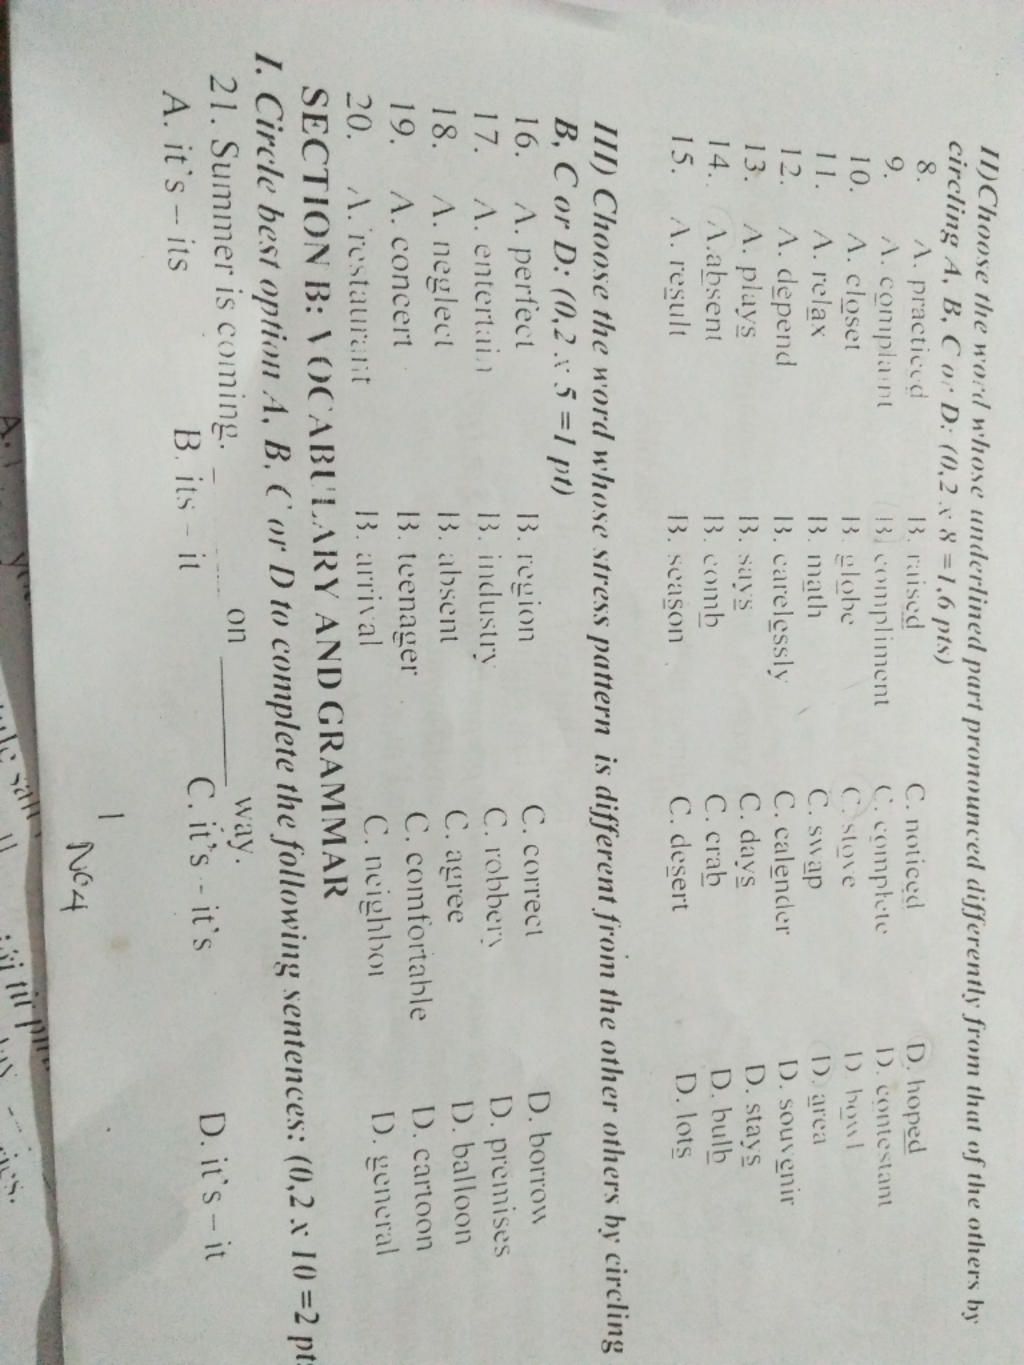 II)Choose the word whose underlined part pronounced differently from that of the others by
circling A, B, C or D: (0,2 x 8 =1,6 pts)
8. A. practiced B. raised C. noticed D. hoped
9. A. complaint B. compliment C. complete D. contestant
10. A. closet B. globe C. stove D. bowl
11. A. relax B. math C. swap D. area
12. A. depend B. carelessly C. calender D. souvenir
13. A. plays B. says C. days D. stays
14. A.absent B. comb C. crab D. bulb
15. A. result B. season C. desert D. lots
III) Choose the word whose stress pattern is different from the other others by circling
B, C or D: (0,2 x 5 =1 pt)
16. A. perfect B. region C. correct D. borrow
17. A. entertain B. industry C. robbery D. premises
18. A. neglect B. absent C. agree D. balloon
19. A. concert B. teenager C. comfortable D. cartoon
20. A. restaurant B. arrival C. neighbor D. general
SECTION B: VOCABULARY AND GRAMMAR
I. Circle best option A, B, C or D to complete the following sentences: (0,2 x 10 =2 pts
21. Summer is coming. ______ on ______ way.
A. it's – its B. its – it C. it's – it's D. it's – it
1
No4